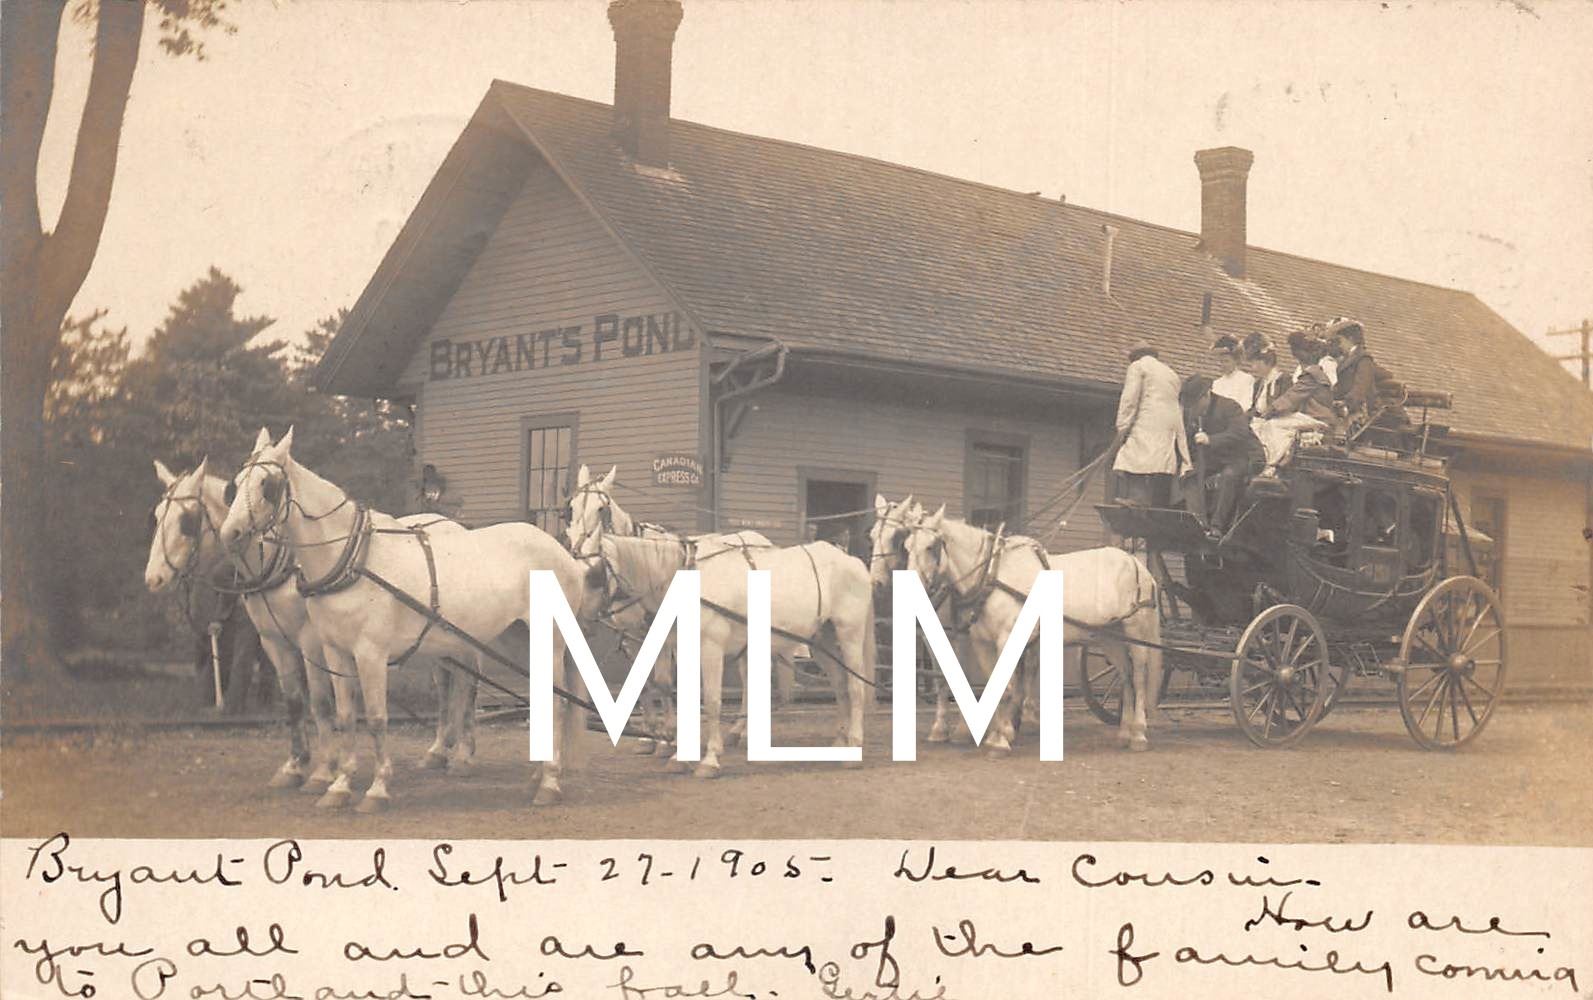 BRYANT'S POND
CANADIAN
EXPRESS Co
MLM
Bryant Pond. Sept 27-1905- Dear Cousin-
How are
you all and are any of the family coming
to Portland this fall. Gertie